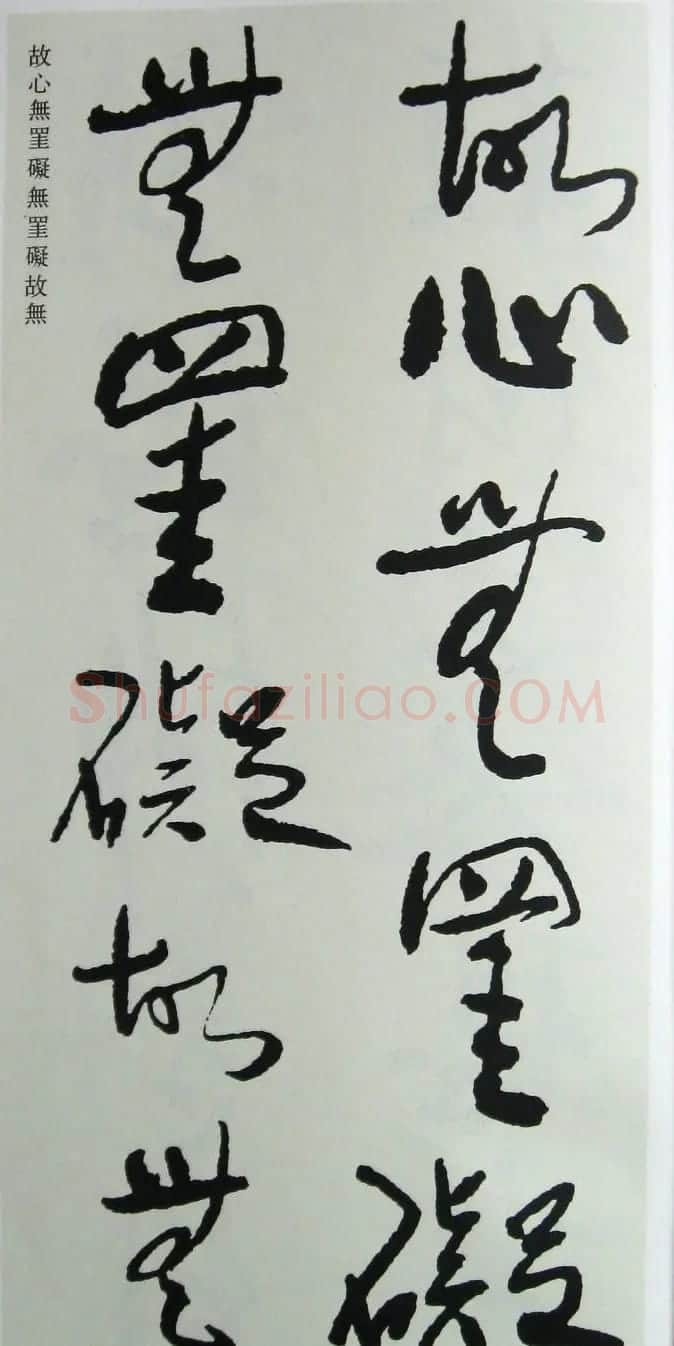 故心無罣礙
無罣礙故無
故心無罣礙無罣礙故無
Shufaziliao.COM